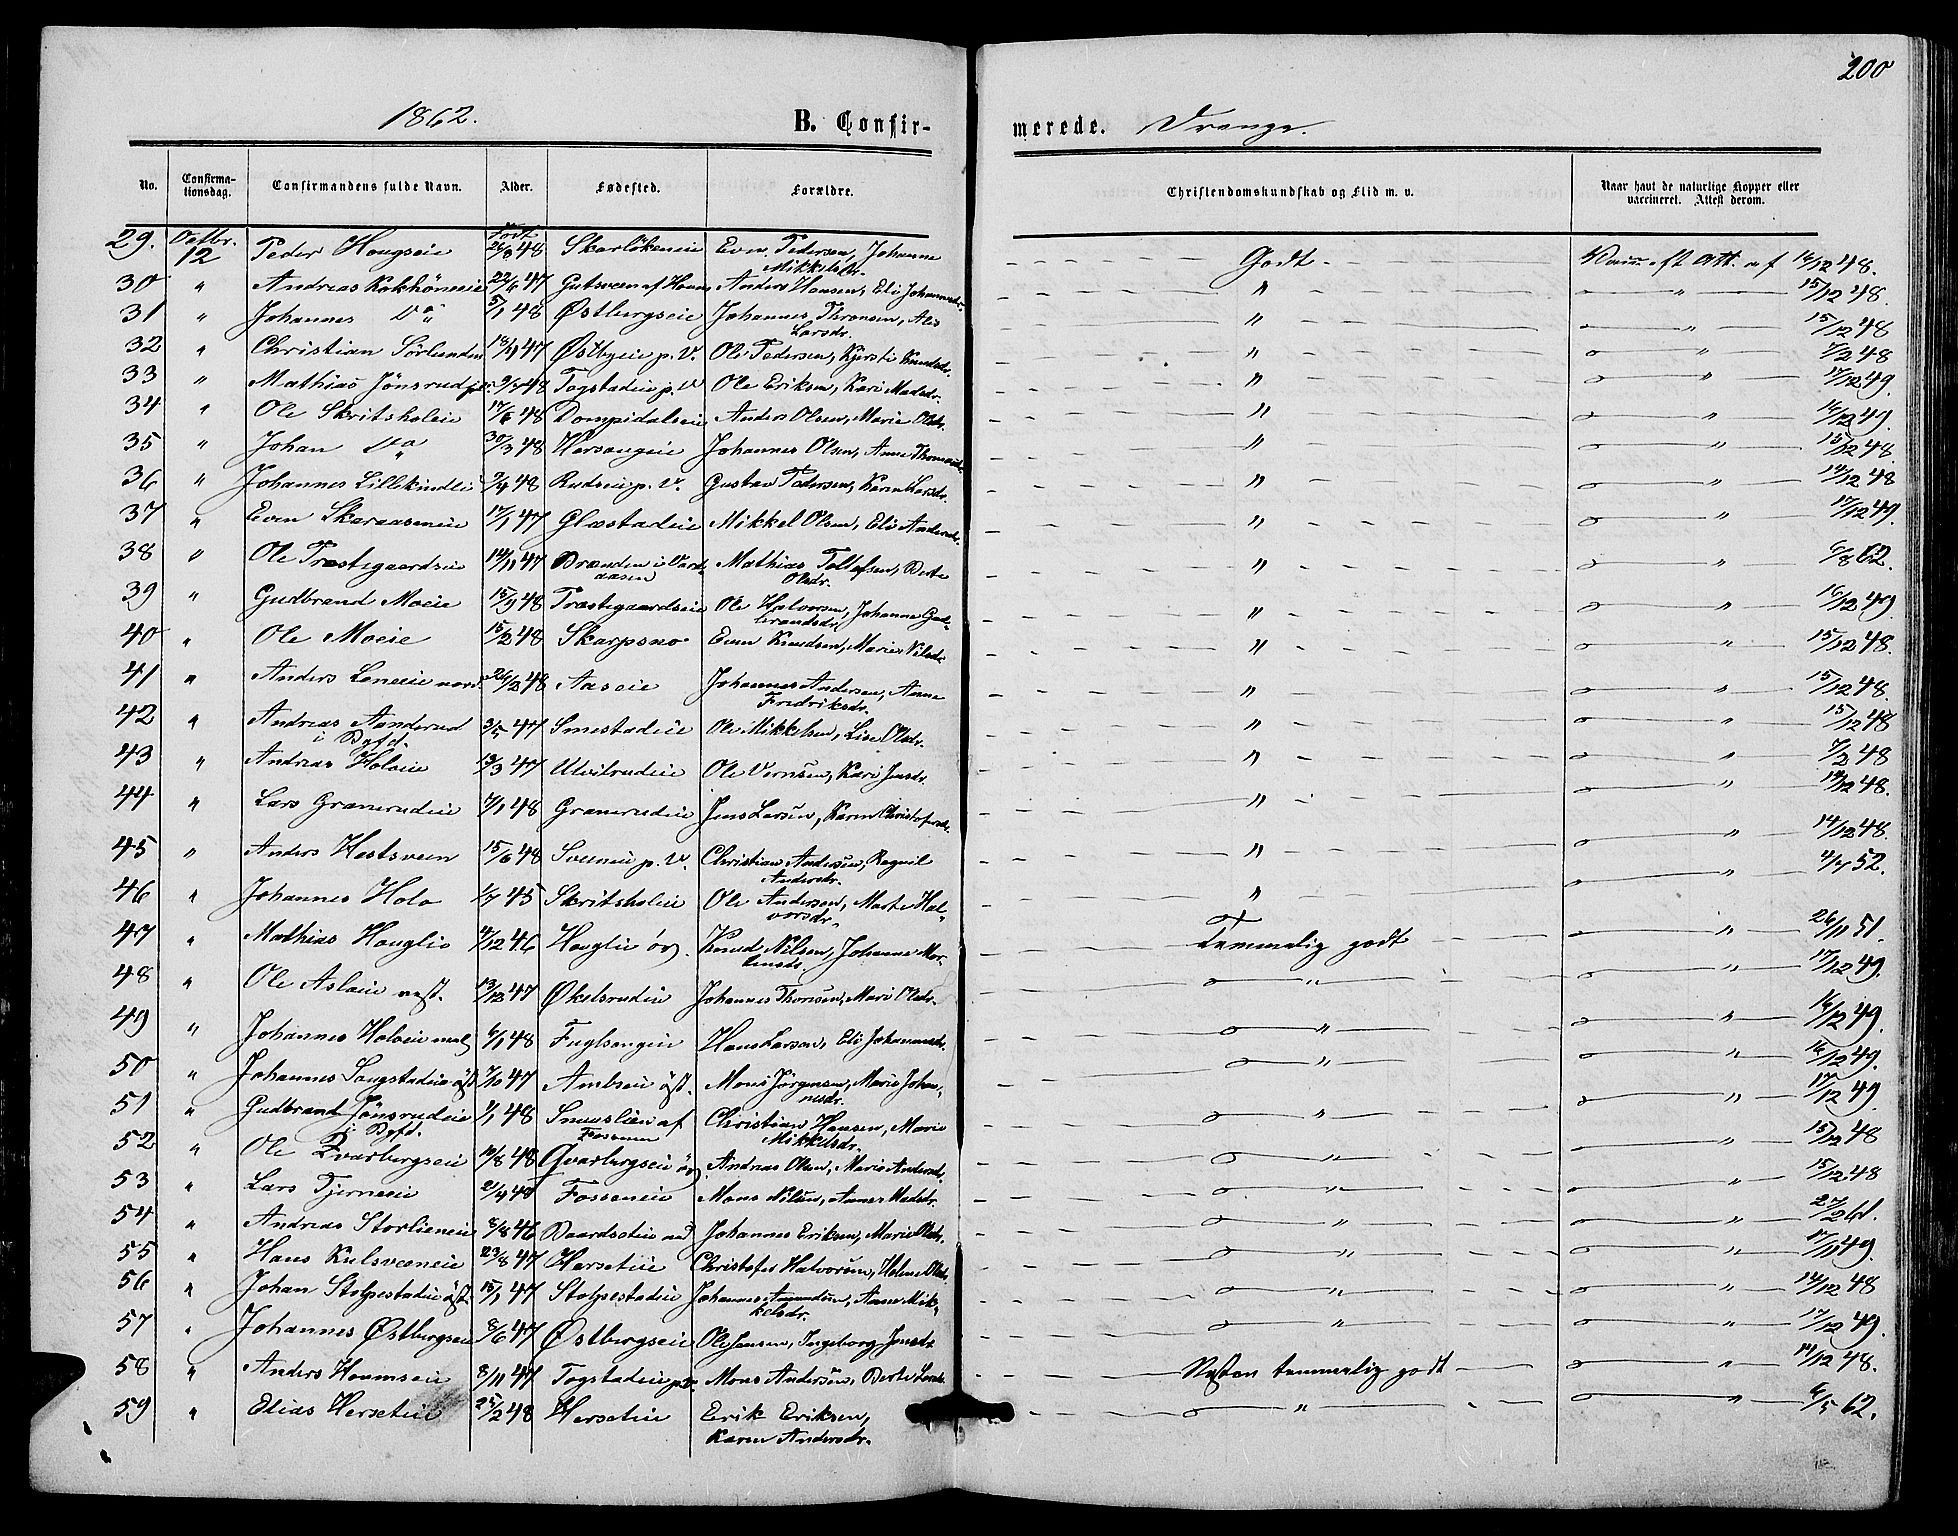 200
1862.
B. Confir-
merede. Drenge.
No.
Confirma-
tionsdag.
Confirmandens fulde Navn.
Alder.
Fødested.
Forældre.
Christendomskundskab og Flid m. v.
Naar havt de naturlige Kopper eller
vaccineret. Attest derom.
Født
29. Octbr. 12 Peder Hougseie 26/8 48 Skarlökeneie Even Pedersen, Johanne Mikkelsdr. Godt. Vacc. eft. att. af 16/12 48.
30 " Andreas Kokhöneeie 22/6 47 Gutsveen af Houm Anders Hansen, Eli Johannesdr. " " 15/12 48.
31 " Johannes Do 5/1 48 Østbergseie Johannes Thronsen, Alis Larsdr. " " 15/12 48
32 " Christian Sörlunden 18/11 47 Østbyeie p. V. Ole Pedersen, Kjersti Knudsdr. " " 7/2 48
33 " Mathias Jönsrud 9/5 48 Togstadeie p. V Ole Eriksen, Kari Madsdr. " " 17/12 49.
34 " Ole Skritsholeie 17/6 48 Dompidalseie Anders Olsen, Marie Olsdr. " " 16/12 49.
35 " Johan Do 30/3 48 Hersougeie Johannes Olsen, Anne Thomasdr. " " 15/12 48
36 " Johannes Lillekindlie 9/4 48 Rudseie p. V. Gustav Pedersen, Karen Larsdr. " " 14/12 48
37 " Even Skaraaseneie 17/1 47 Glæstadeie Mikkel Olsen, Eli Andersdr. " " 17/12 49.
38 " Ole Træstegaardseie 14/11 47 Brænden i Vard- aasen Mathias Tollefsen, Berte Olsdr. " " 6/8 62.
39 " Gudbrand Moeie 15/9 48 Træstegaardseie Ole Halvorsen, Johanne Gud- brandsdr. " " 16/12 49.
40 " Ole Moeie 15/2 48 Skarpsno Even Knudsen, Marie Nilsdr. " " 15/12 48.
41 " Anders Løneeie nord. 26/2 48 Aaseie Johannes Andersen, Anne Fredriksdr. " " 15/12 48.
42 " Andreas Aanderud i Bgfd. 3/5 47 Smestadeie Ole Mikkelsen, Lise Olsdr. " " 15/12 48
43 " Andreas Holoeie 13/3 47 Ulvilrudeie Ole Vernsen, Kari Jensdr. " " 7/2 48
44 " Lars Granerudeie 7/1 48 Granerudeie Jens Larsen, Karen Christofersdr. " " 14/12 48.
45 " Anders Hestsveen 15/6 48 Sveeneie p. V. Christian Andersen, Regnil Andersdr. " " 14/12 48.
46 " Johannes Holo 2/7 45 Skritsholeie Ole Andersen, Marte Hal- vorsdr. " " 4/7 52.
47 " Mathias Houglie 4/12 46 Houglie öv. Knud Nilsen, Johanne Mor- tensdr. Temmelig godt " 26/11 51.
48 " Ole Asloeie vest. 13/12 47 Økelsrudeie Johannes Thorsen, Mari Olsdr. " " 17/12 49.
49 " Johannes Holoeie mel 6/1 48 Fuglsangeie Hans Larsen, Eli Johannesdr. " " 16/12 49.
50 " Johannes Sougstadeie öst. 7/10 47 Ambseie öst. Mons Jörgensen, Marie Johan- nesdr. " " 16/12 49.
51 " Gudbrand Jönsrudeie i Bgfd. 1/1 48 Snuuslien af Fossenen Christian Hansen, Marie Mikkelsdr. " " 17/12 49
52 " Ole Qvarbergseie 10/8 48 Qvarbergseie öv. Andreas Olsen, Marie Andersdr. " " 15/12 48
53 " Lars Tjerneeie 21/4 48 Fosseneie Mons Nilsen, Anne Madsdr. " " 15/12 48
54 " Andreas Storlieneie 8/8 46 Baardseteie ned Johannes Eriksen, Marie Olsdr. " " 27/2 61.
55 " Hans Kulsveeneie 23/8 47 Herseteie Christofer Halvorsen, Helene Olsdr. " " 17/11 49.
56 " Johan Stolpestadeie öst. 15/1 47 Stolpestadeie Johannes Amundsen, Anne Mik- kelsdr. " " 14/12 48
57 " Johannes Østbergseie 8/6 47 Østbergseie Ole Jensen, Ingeborg Jensdr. " " 17/12 49.
58 " Anders Houmseie 8/11 47 Togstadeie p. V. Mons Andersen, Berte Larsdr. Næsten temmelig godt " 14/12 48.
59 " Elias Herseteie 25/2 48 Herseteie Erik Eriksen, Karen Andersdr. " " 6/5 62.